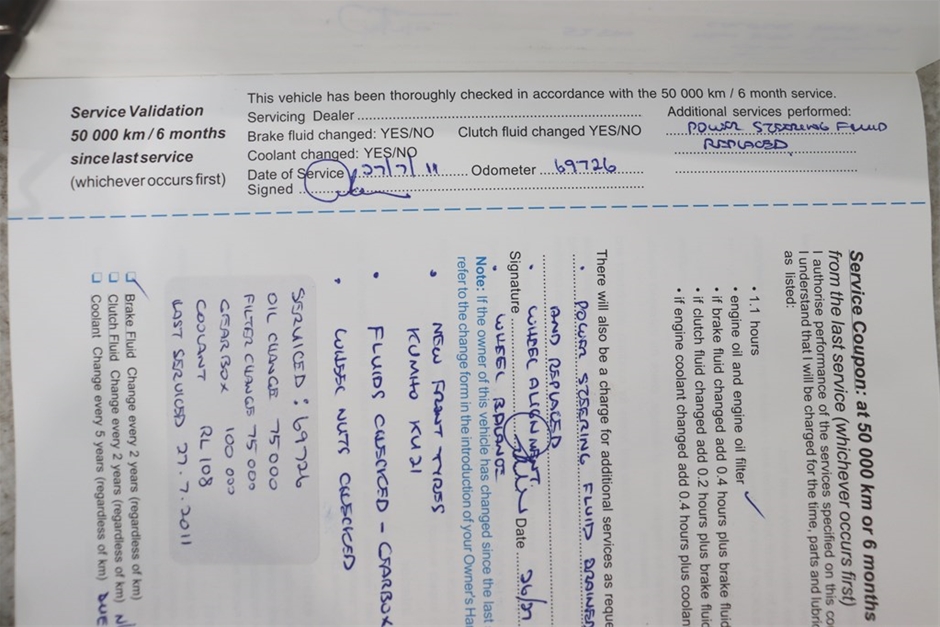 Service Validation
50 000 km / 6 months
since last service
(whichever occurs first)
This vehicle has been thoroughly checked in accordance with the 50 000 km / 6 month service.
Servicing Dealer
Brake fluid changed: YES/NO Clutch fluid changed YES/NO
Coolant changed: YES/NO
Date of Service 27/7/11 Odometer 69726
Signed
Additional services performed:
POWER STEERING FLUID
REPLACED
Service Coupon: at 50 000 km or 6 months
from the last service (whichever occurs first)
I authorise performance of the services specified on this co
I understand that I will be charged for the time, parts and lubric
as listed:
• 1.1 hours
• engine oil and engine oil filter ✓
• if brake fluid changed add 0.4 hours plus brake fluid
• if clutch fluid changed add 0.2 hours plus brake fluid
• if engine coolant changed add 0.4 hours plus coolan
There will also be a charge for additional services as reque
• POWER STEERING FLUID DRAINED
AND REPLACED
• WHEEL ALIGNMENT
Signature Date 26/
• WHEEL BALANCE
Note: If the owner of this vehicle has changed since the last
refer to the change form in the introduction of your Owner's Ha
• NEW FRONT TYRES
KUMHO KU21
• FLUIDS CHECKED - GEARBOX
• WHEEL NUTS CHECKED
SERVICED: 69726
OIL CHANGE 75000
FILTER CHANGE 75000
GEARBOX 100 000
COOLANT RL 108
LAST SERVICED 27.7.2011
Brake Fluid Change every 2 years (regardless of km)
Clutch Fluid Change every 2 years (regardless of km)
Coolant Change every 5 years (regardless of km) DUE